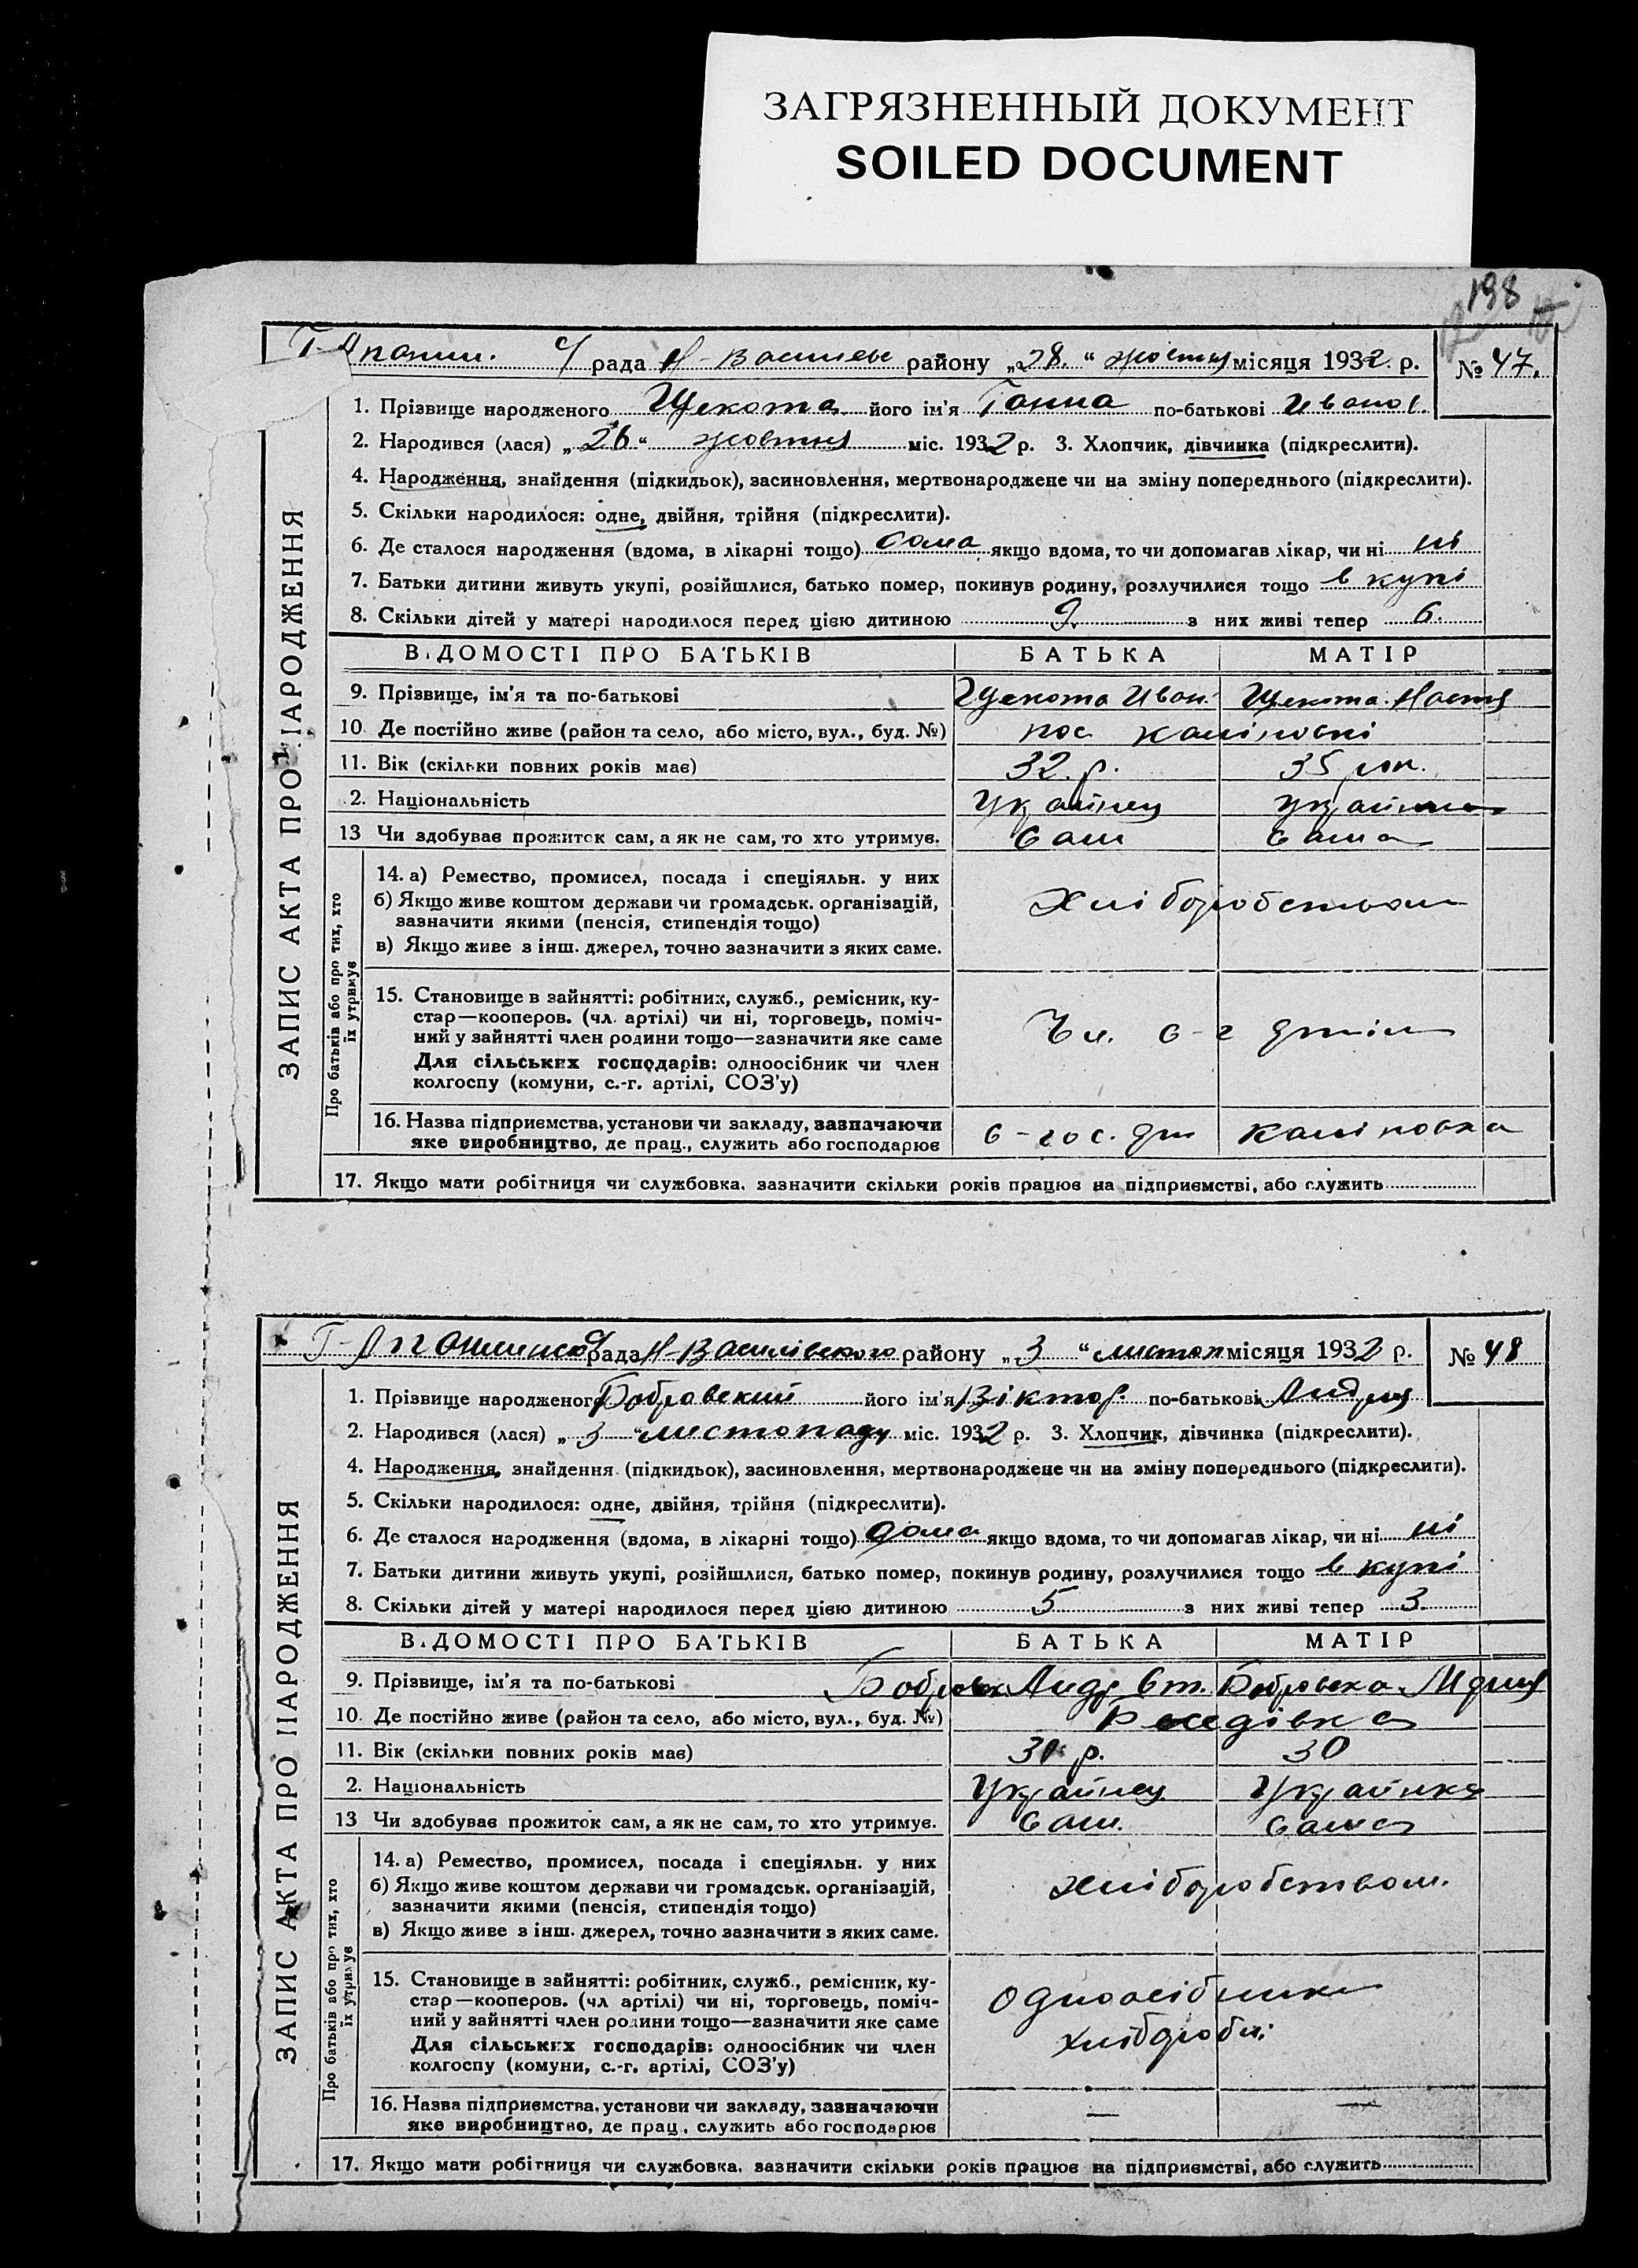 ЗАГРЯЗНЕННЫЙ ДОКУМЕНТ
SOILED DOCUMENT
198
с/рада Н-Василевс району „28.“ жовтня місяця 1932 р. № 47.
1. Прізвище народженого Щекота його ім'я Ганна по-батькові Иванов.
2. Народився (лася) „26“ жовтня міс. 1932 р. 3. Хлопчик, дівчинка (підкреслити).
4. Народження, знайдення (підкидьок), засиновлення, мертвонароджене чи на зміну попереднього (підкреслити).
5. Скільки народилося: одне, двійня, трійня (підкреслити).
6. Де сталося народження (вдома, в лікарні тощо) дома якщо вдома, то чи допомагав лікар, чи ні ні
7. Батьки дитини живуть укупі, розійшлися, батько помер, покинув родину, розлучилися тощо в купі
8. Скільки дітей у матері народилося перед цією дитиною 9. з них живі тепер 6.
ЗАПИС АКТА ПРО НАРОДЖЕННЯ
ВІДОМОСТІ ПРО БАТЬКІВ БАТЬКА МАТІР
9. Прізвище, ім'я та по-батькові Щекота Иван. Щекота. Настя
10. Де постійно живе (район та село, або місто, вул., буд. №) пос
11. Вік (скільки повних років має) 32. р. 35 рок.
2. Національність Українец українка
13 Чи здобував прожиток сам, а як не сам, то хто утримує. Сам Сама
Про батьків або про тих, хто їх утримує
14. а) Ремество, промисел, посада і спеціяльн. у них
б) Якщо живе коштом держави чи громадськ. організацій,
зазначити якими (пенсія, стипендія тощо)
в) Якщо живе з інш. джерел, точно зазначити з яких саме.
Хліборобством
15. Становище в зайнятті: робітник, служб., ремісник, ку-
стар—кооперов. (чл. артілі) чи ні, торговець, поміч-
ний у зайнятті член родини тощо—зазначити яке саме
Для сільських господарів: одноосібник чи член
колгоспу (комуни, с.-г. артілі, СОЗ'у)
Чл. с-г
16. Назва підприємства, установи чи закладу, зазначаючи
яке виробництво, де прац., служить або господарює
17. Якщо мати робітниця чи службовка, зазначити скільки років працює на підприємстві, або служить
рада Н-Василівского району „3“ листоп місяця 1932 р. № 48
1. Прізвище народженого Бобровский його ім'я Віктор. по-батькові Андрия
2. Народився (лася) „3“ листопаду міс. 1932 р. 3. Хлопчик, дівчинка (підкреслити).
4. Народження, знайдення (підкидьок), засиновлення, мертвонароджене чи на зміну попереднього (підкреслити).
5. Скільки народилося: одне, двійня, трійня (підкреслити).
6. Де сталося народження (вдома, в лікарні тощо) дома якщо вдома, то чи допомагав лікар, чи ні ні
7. Батьки дитини живуть укупі, розійшлися, батько помер, покинув родину, розлучилися тощо в купі
8. Скільки дітей у матері народилося перед цією дитиною 5 з них живі тепер 3.
ЗАПИС АКТА ПРО НАРОДЖЕННЯ
ВІДОМОСТІ ПРО БАТЬКІВ БАТЬКА МАТІР
9. Прізвище, ім'я та по-батькові Бобровск Андр Ст. Бобровска Мария
10. Де постійно живе (район та село, або місто, вул., буд. №)
11. Вік (скільки повних років має) р. 30
2. Національність Українец Українка
13 Чи здобував прожиток сам, а як не сам, то хто утримує. Сам. Сама
Про батьків або про тих, хто їх утримує
14. а) Ремество, промисел, посада і спеціяльн. у них
б) Якщо живе коштом держави чи громадськ. організацій,
зазначити якими (пенсія, стипендія тощо)
в) Якщо живе з інш. джерел, точно зазначити з яких саме.
хліборобством.
15. Становище в зайнятті: робітник, служб., ремісник, ку-
стар—кооперов. (чл артілі) чи ні, торговець, поміч-
ний у зайнятті член родини тощо—зазначити яке саме
Для сільських господарів: одноосібник чи член
колгоспу (комуни, с.-г. артілі, СОЗ'у)
Одноосібники
хлібороби
16. Назва підприємства, установи чи закладу, зазначаючи
яке виробництво, де прац., служить або господарює — —
17. Якщо мати робітниця чи службовка, зазначити скільки років працює на підприємстві, або служить